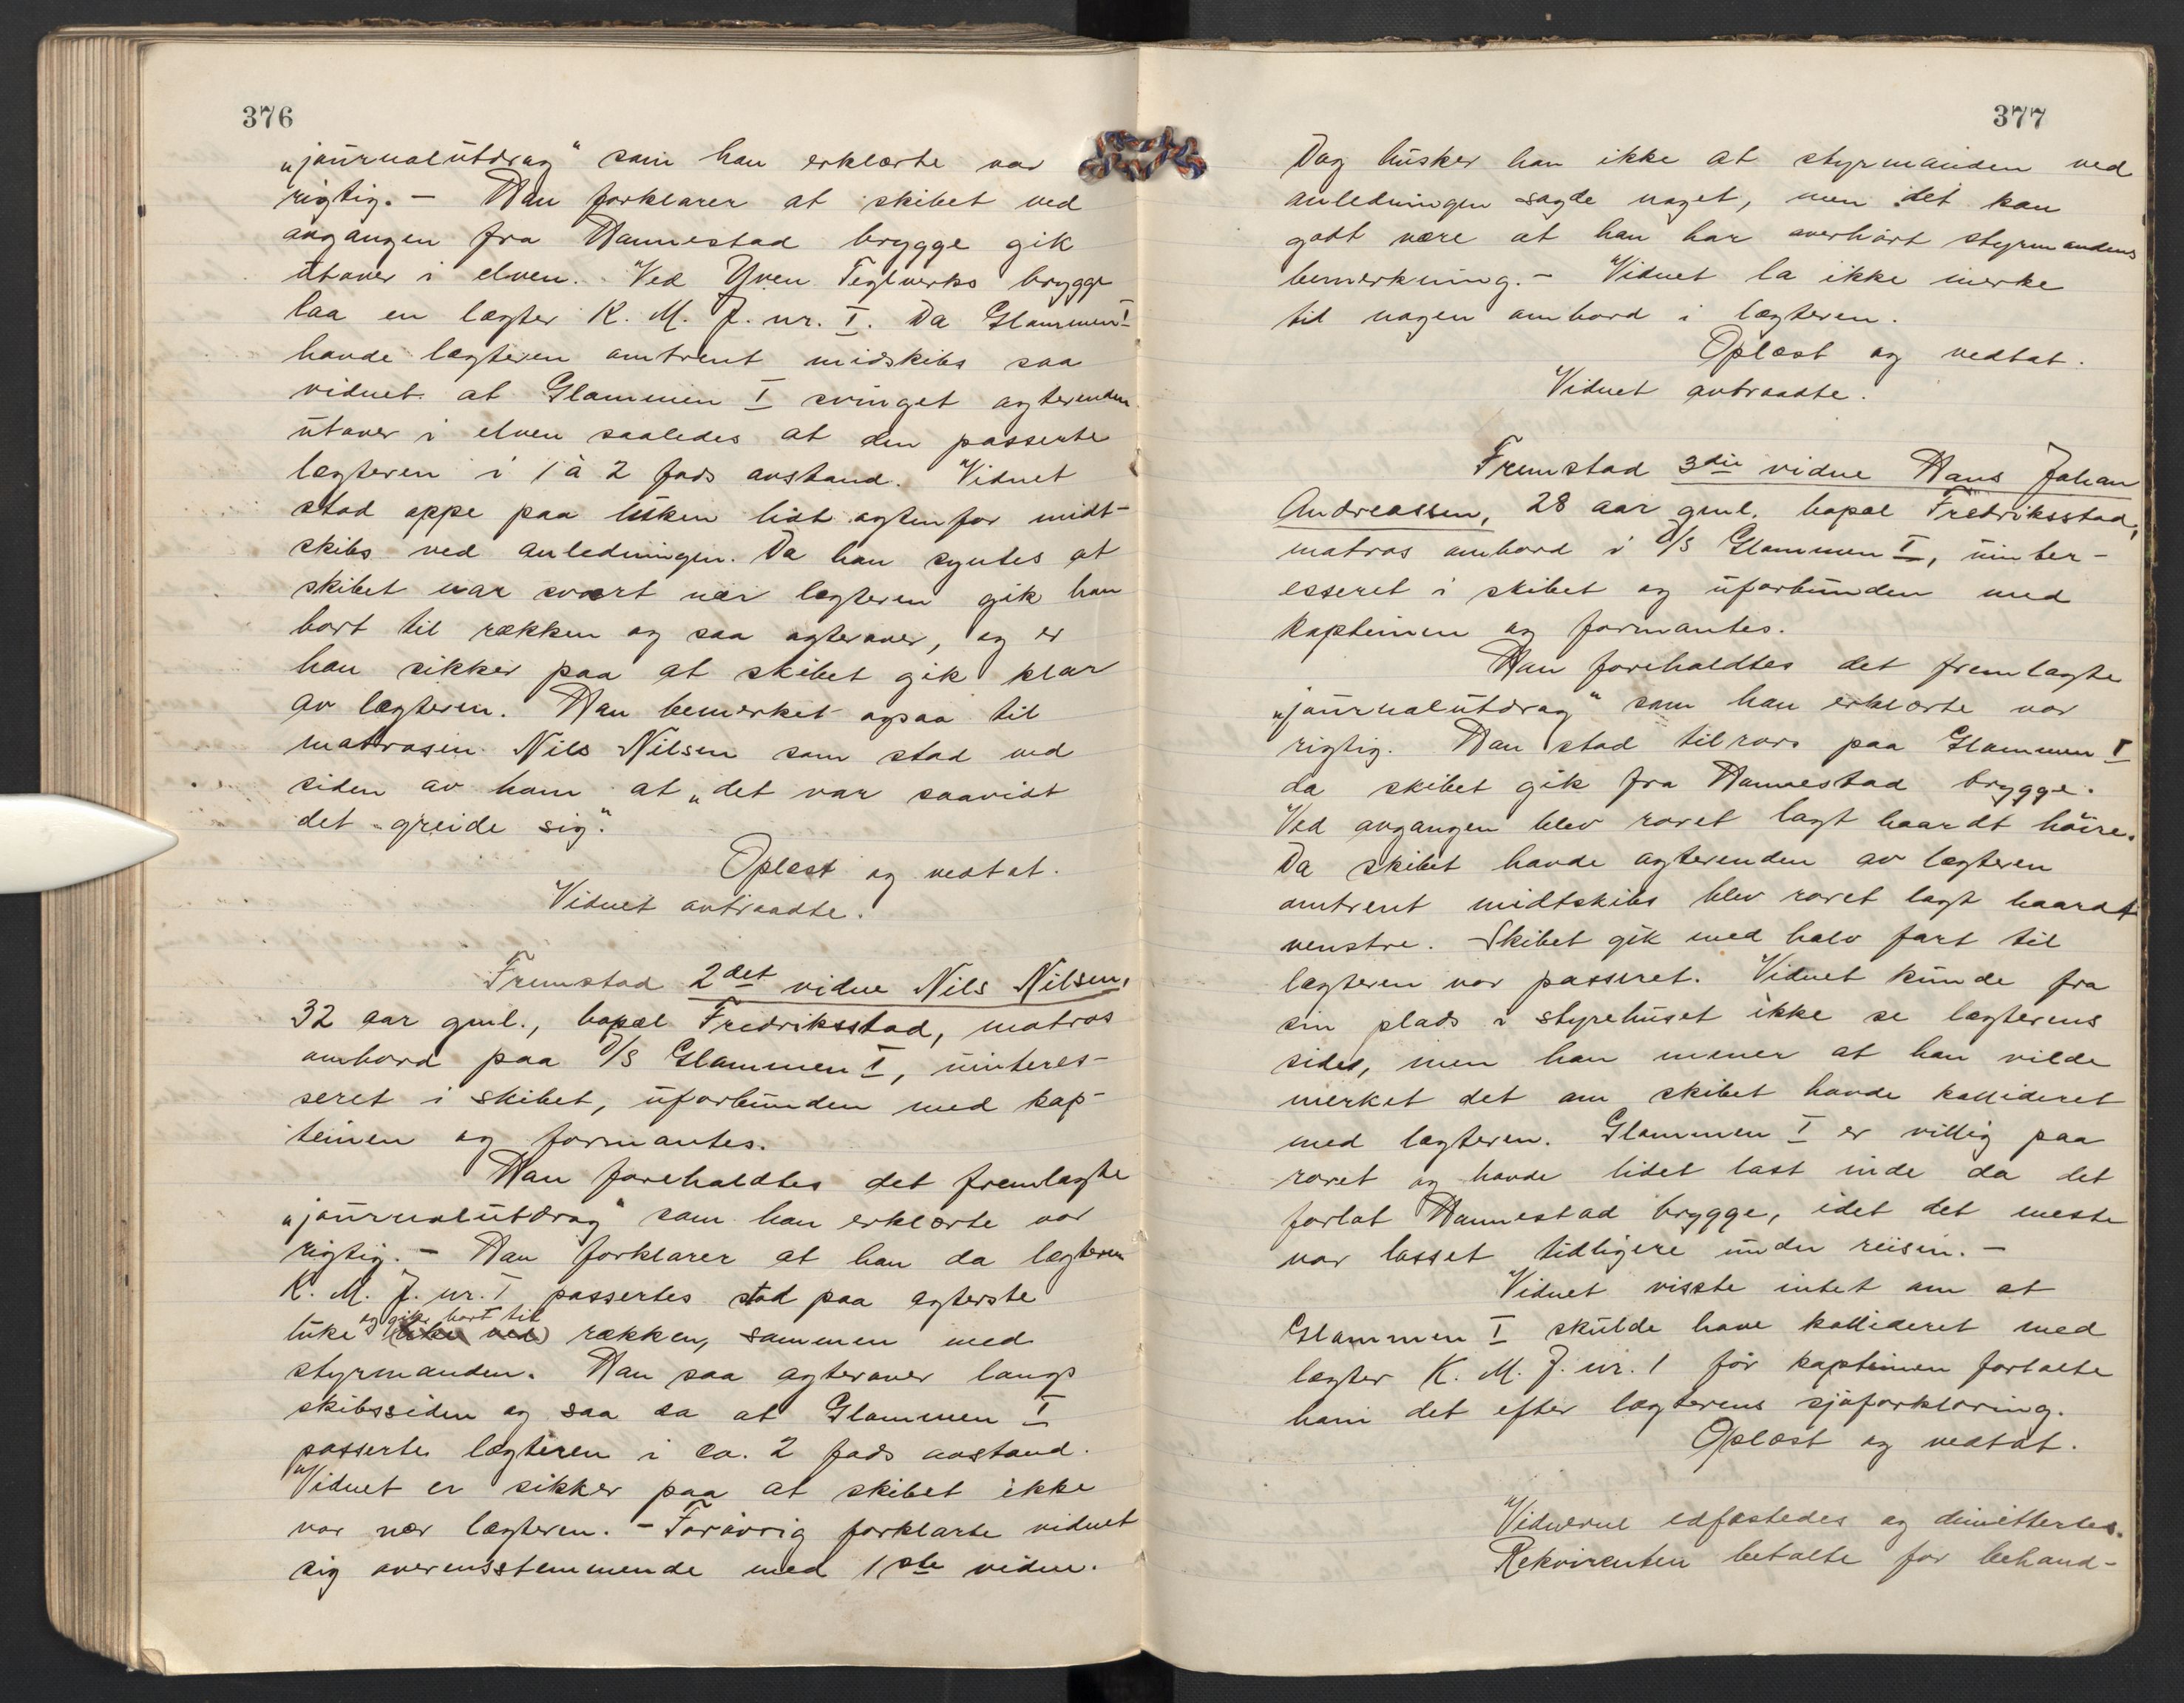 376
„journalutdrag" som han erklærte var
rigtig. - Han forklarer at skibet ved
avgangen fra Hannestad brygge gik
utover i elven. Ved Yven Teglverks brygge
laa en lægter K. M. J. nr. I. Da Glommen I
havde lægteren omtrent midskibs saa
vidnet at Glommen I svinget agterenden
utover i elven saaledes at den passerte
lægteren i 1 à 2 fods avstand. Vidnet
stod oppe paa luken lidt agtenfor midt-
skibs ved anledningen. Da han syntes at
skibet var svært nær lægteren gik han
bort til rækken og saa agterover, og er
han sikker paa at skibet gik klar
av lægteren. Han bemerket ogsaa til
matrosen Nils Nilsen som stod ved
siden av ham at „det var saavidt
det greide sig."
Oplæst og vedtat.
Vidnet avtraadte.
Fremstod 2det vidne Nils Nilsen,
32 aar gml., bopæl Fredriksstad, matros
ombord paa D/S Glommen I, uinteres-
seret i skibet, uforbunden med kap-
teinen og formantes.
Han foreholdtes det fremlagte
„journalutdrag" som han erklærte var
rigtig. - Han forklarer at han da lægteren
K. M. J. nr. I passertes stod paa agterste
og gik bort til
luke (like ved) rækken, sammen med
styrmanden. Han saa agterover langs
skibssiden og saa da at Glommen I
passerte lægteren i ca. 2 fods avstand.
Vidnet er sikker paa at skibet ikke
var nær lægteren. - Forøvrig forklarte vidnet
sig overensstemmende med 1ste vidne.
377
Dog husker han ikke at styrmanden ved
anledningen sagde noget, men det kan
godt være at han har overhørt styrmandens
bemerkning. - Vidnet la ikke merke
til nogen ombord i lægteren.
Oplæst og vedtat.
Vidnet avtraadte.
Fremstod 3die vidne Hans Johan
Andreassen, 28 aar gml. bopæl Fredriksstad,
matros ombord i D/S Glommen I, uinter-
esseret i skibet og uforbunden med
kapteinen og formantes.
Han foreholdtes det fremlagte
„journalutdrag" som han erklærte var
rigtig. Han stod tilrors paa Glommen I
da skibet gik fra Hannestad brygge.
Ved avgangen blev roret lagt haardt høire.
Da skibet havde agterenden av lægteren
omtrent midtskibs blev roret lagt haardt
venstre. Skibet gik med halv fart til
lægteren var passeret. Vidnet kunde fra
sin plads i styrehuset ikke se lægterens
sider, men han mener at han vilde
merket det om skibet havde kollideret
med lægteren. Glommen I er villig paa
roret og havde lidet last inde da det
forlot Hannestad brygge, idet det meste
var losset tidligere under reisen. -
Vidnet visste intet om at
Glommen I skulde have kollideret med
lægter K. M. J. nr. 1 før kapteinen fortalte
ham det efter lægterens sjøforklaring.
Oplæst og vedtat.
Vidnerne edfæstedes og dimittertes.
Rekvirenten betalte for behand-